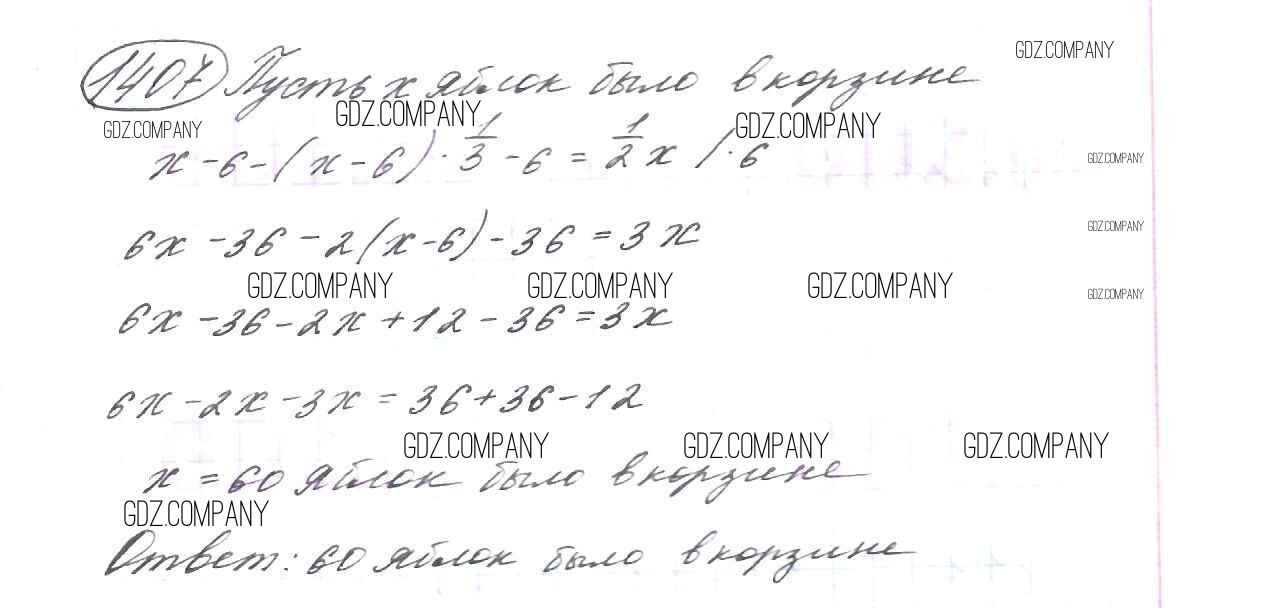 GDZ.COMPANY
1407 Пусть x яблок было в корзине
GDZ.COMPANY GDZ.COMPANY GDZ.COMPANY
x - 6 - (x - 6) · 1/3 - 6 = 1/2 x / · 6
GDZ.COMPANY
6x - 36 - 2(x - 6) - 36 = 3x
GDZ.COMPANY
GDZ.COMPANY GDZ.COMPANY GDZ.COMPANY GDZ.COMPANY
6x - 36 - 2x + 12 - 36 = 3x
6x - 2x - 3x = 36 + 36 - 12
GDZ.COMPANY GDZ.COMPANY GDZ.COMPANY
x = 60 яблок было в корзине
GDZ.COMPANY
Ответ: 60 яблок было в корзине